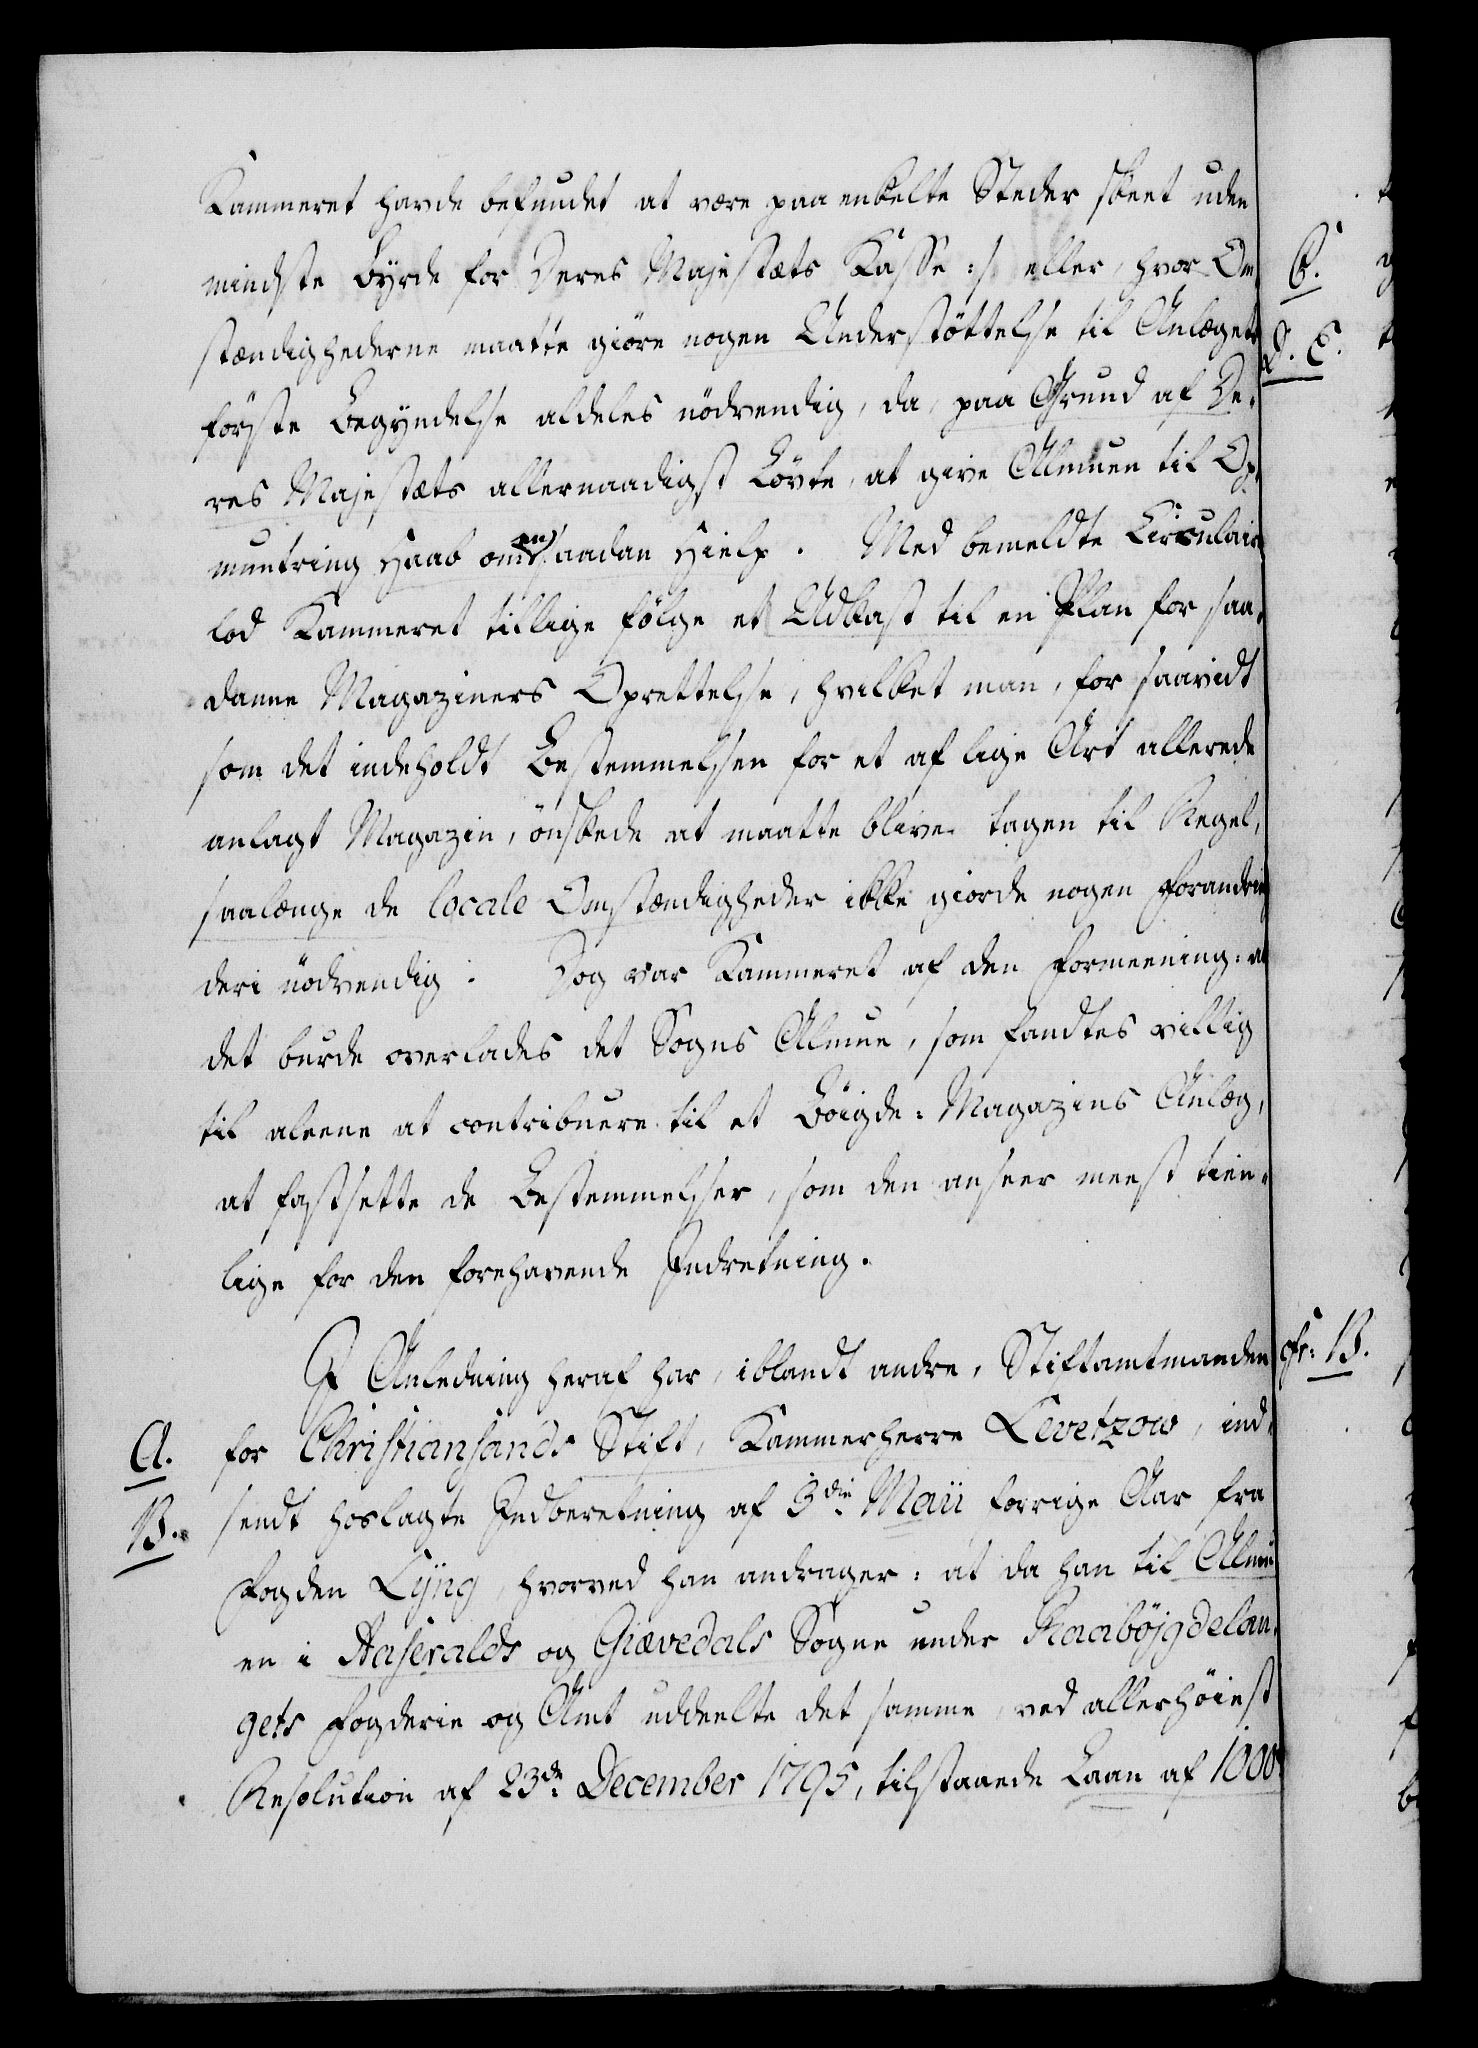 Kammeret havde befundet at være paa enkelte Steder skeet uden
mindste Byrde for Deres Majestæts Kasse :/ eller, hvor Om-
stændighederne maatte giöre nogen Understöttelse til Anlægets
förste Begyndelse aldeles nödvendig, da, paa Grund af De-
res Majestæts allernaadigst Lövte, at give Almuen til Op-
muntring Haab om en saadan Hielp. Med bemeldte Circulair
lod Kammeret tillige fölge et Udkast til en Plan for saa-
danne Magaziners Oprettelse, hvilket man, for saavidt
som det indeholdt Bestemmelsen for et af lige Art allerede
anlagt Magazin, önskede at maatte blive tagen til Regel,
saalænge de locale Omstændigheder ikke giorde nogen Forandring
deri nödvendig. Dog var Kammeret af den Formeening: at
det burde overlades det Sogns Almue, som fandtes villig
til aleene at contribuere til et Böigde-Magazins Anlæg,
at fastsette de Bestemmelser, som den anseer meest tien-
lige for den forehavende Indretning.
I Anledning heraf har, iblandt andre, Stiftamtmanden
A. for Christiansands Stift, Kammerherre Levetzow, ind-
B. sendt hoslagte Indberetning af 3die Maii forrige Aar fra
Fogden Lÿng, hvorved han andrager: at da han til Almu-
en i Aaseralds og Giævedals Sogne under Raabÿgdelau-
gets Fogderie og Amt uddeelte det samme, ved allerhöiest
Resolution af 23de December 1795, tilstaaede Laan af 1000
C.
D. E.
cfr: B.